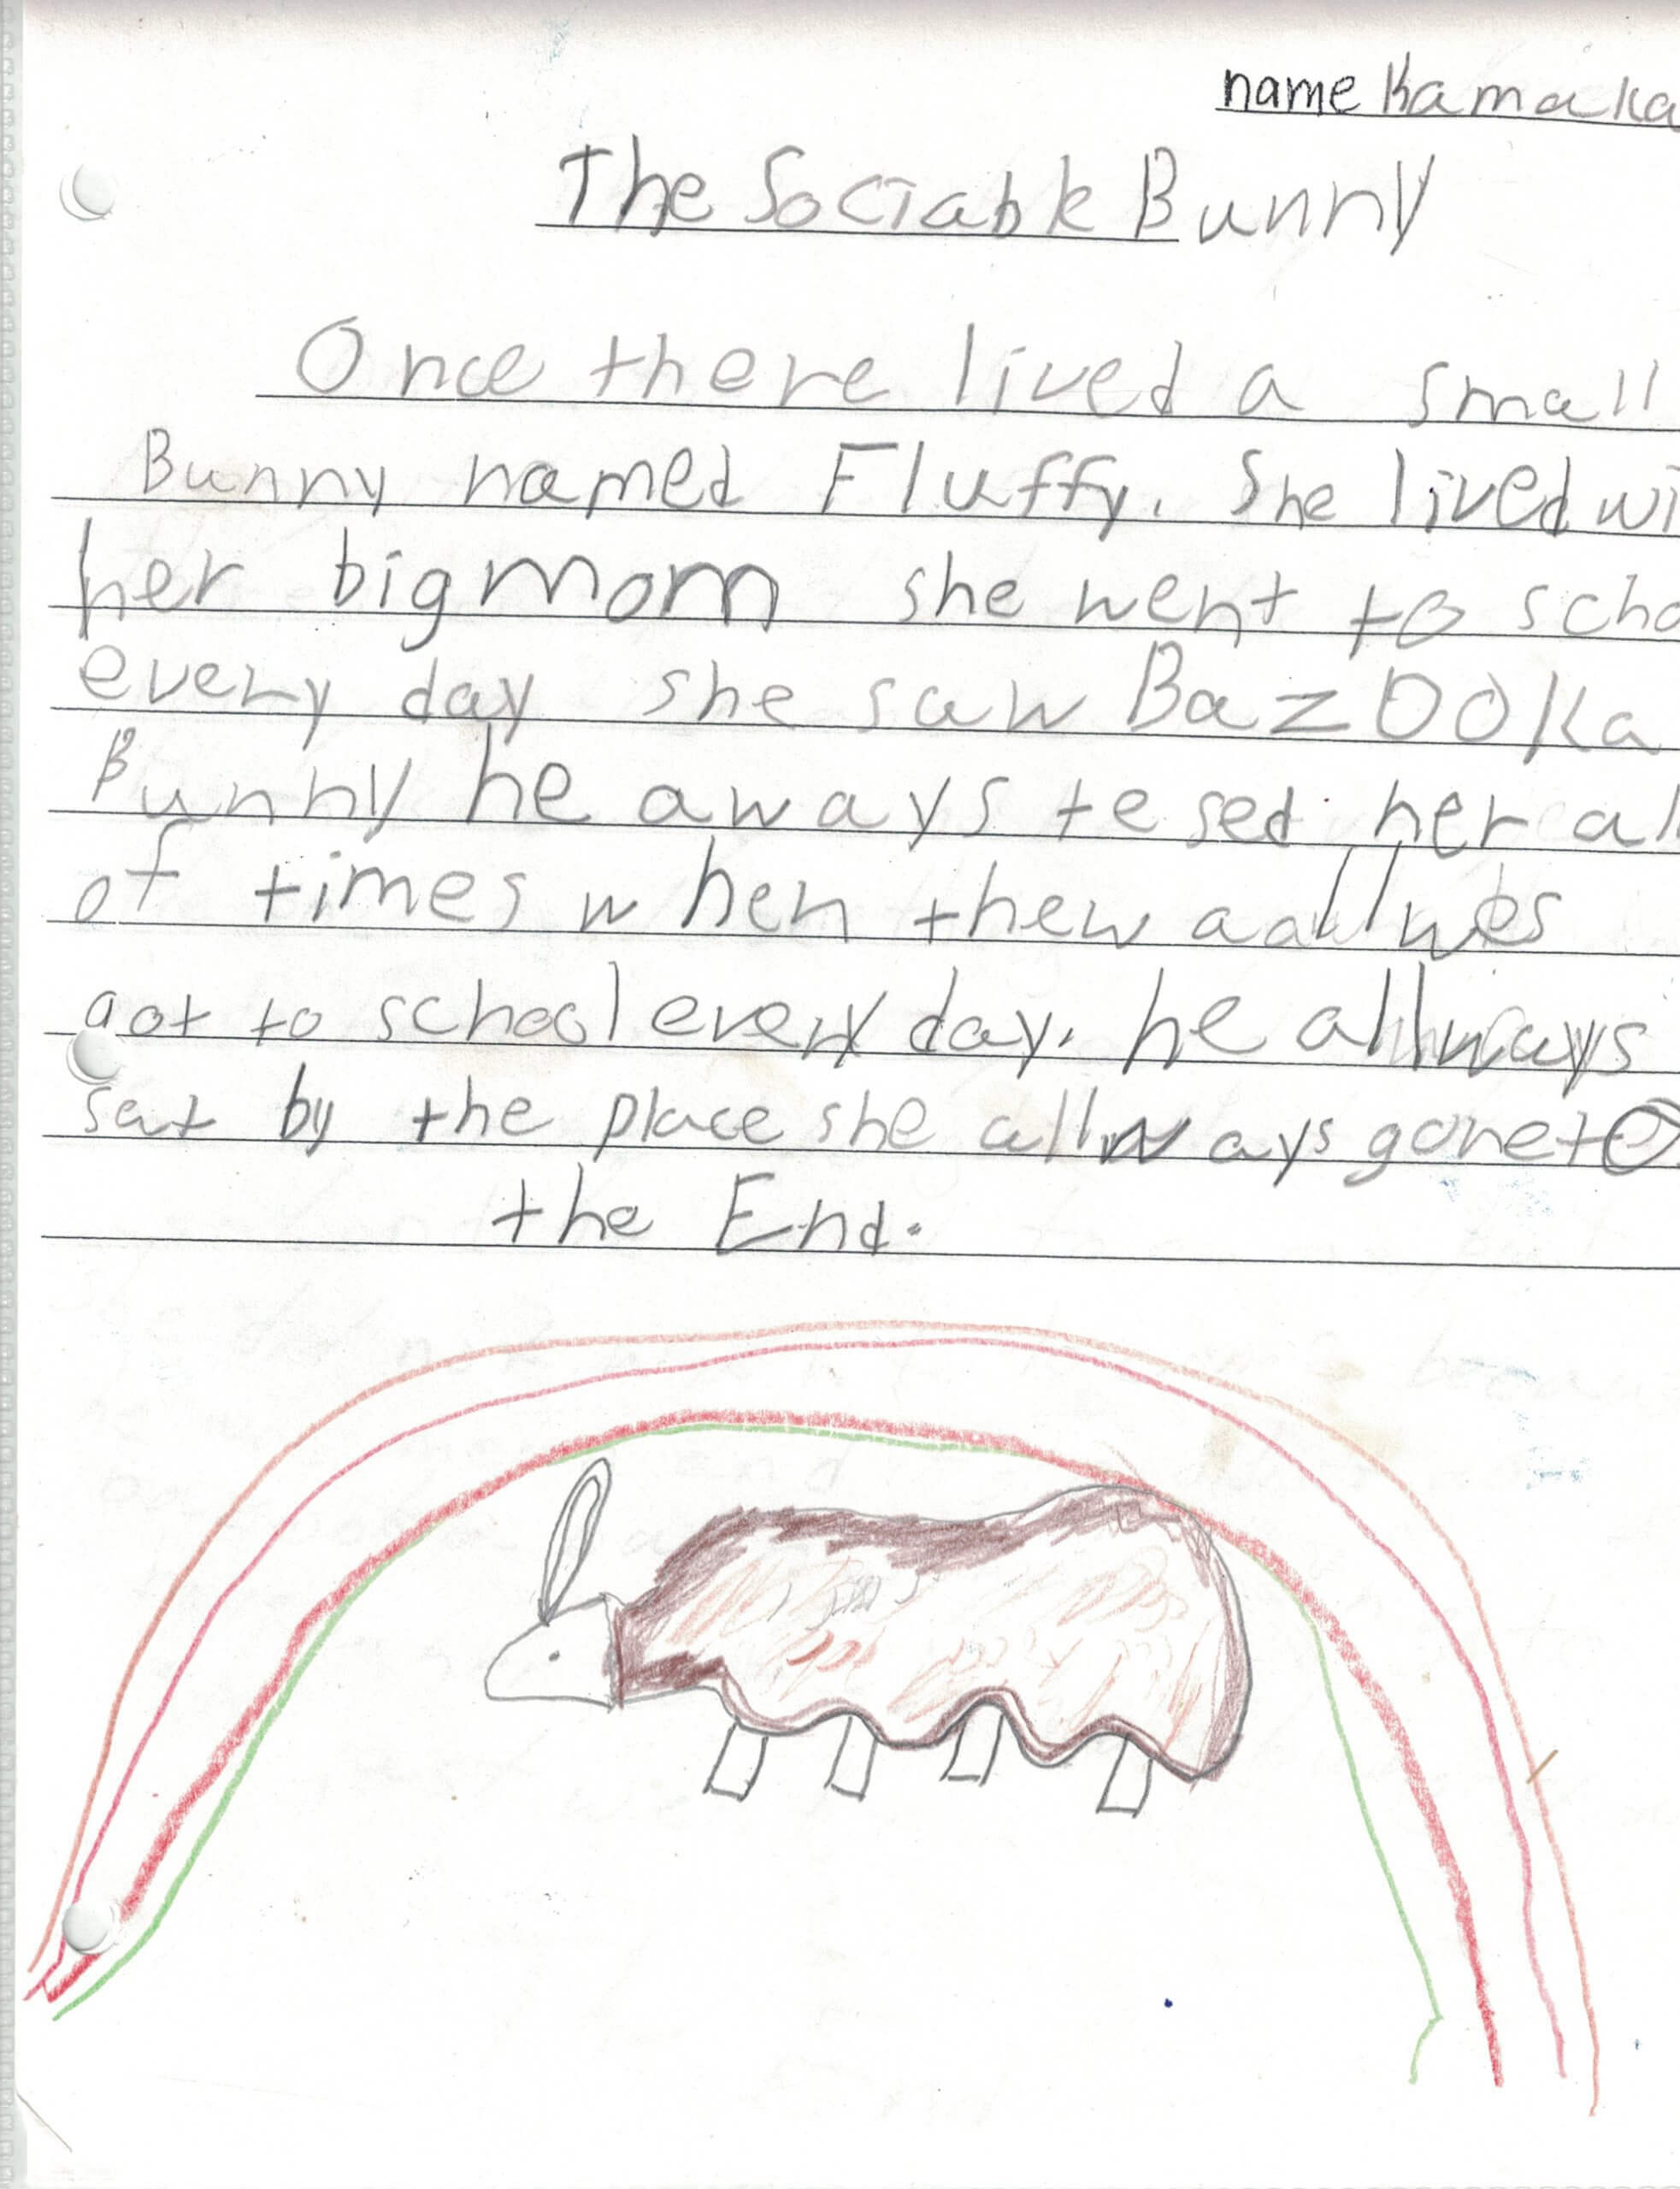 name Kamaka
The Sociable Bunny
Once there lived a small
Bunny named Fluffy. She lived wi
her big mom she went to scho
every day she saw Bazooka
Bunny he aways tesed her all
of times when thew aallwes
got to school every day. he allways
sat by the place she allways gone to
the End.